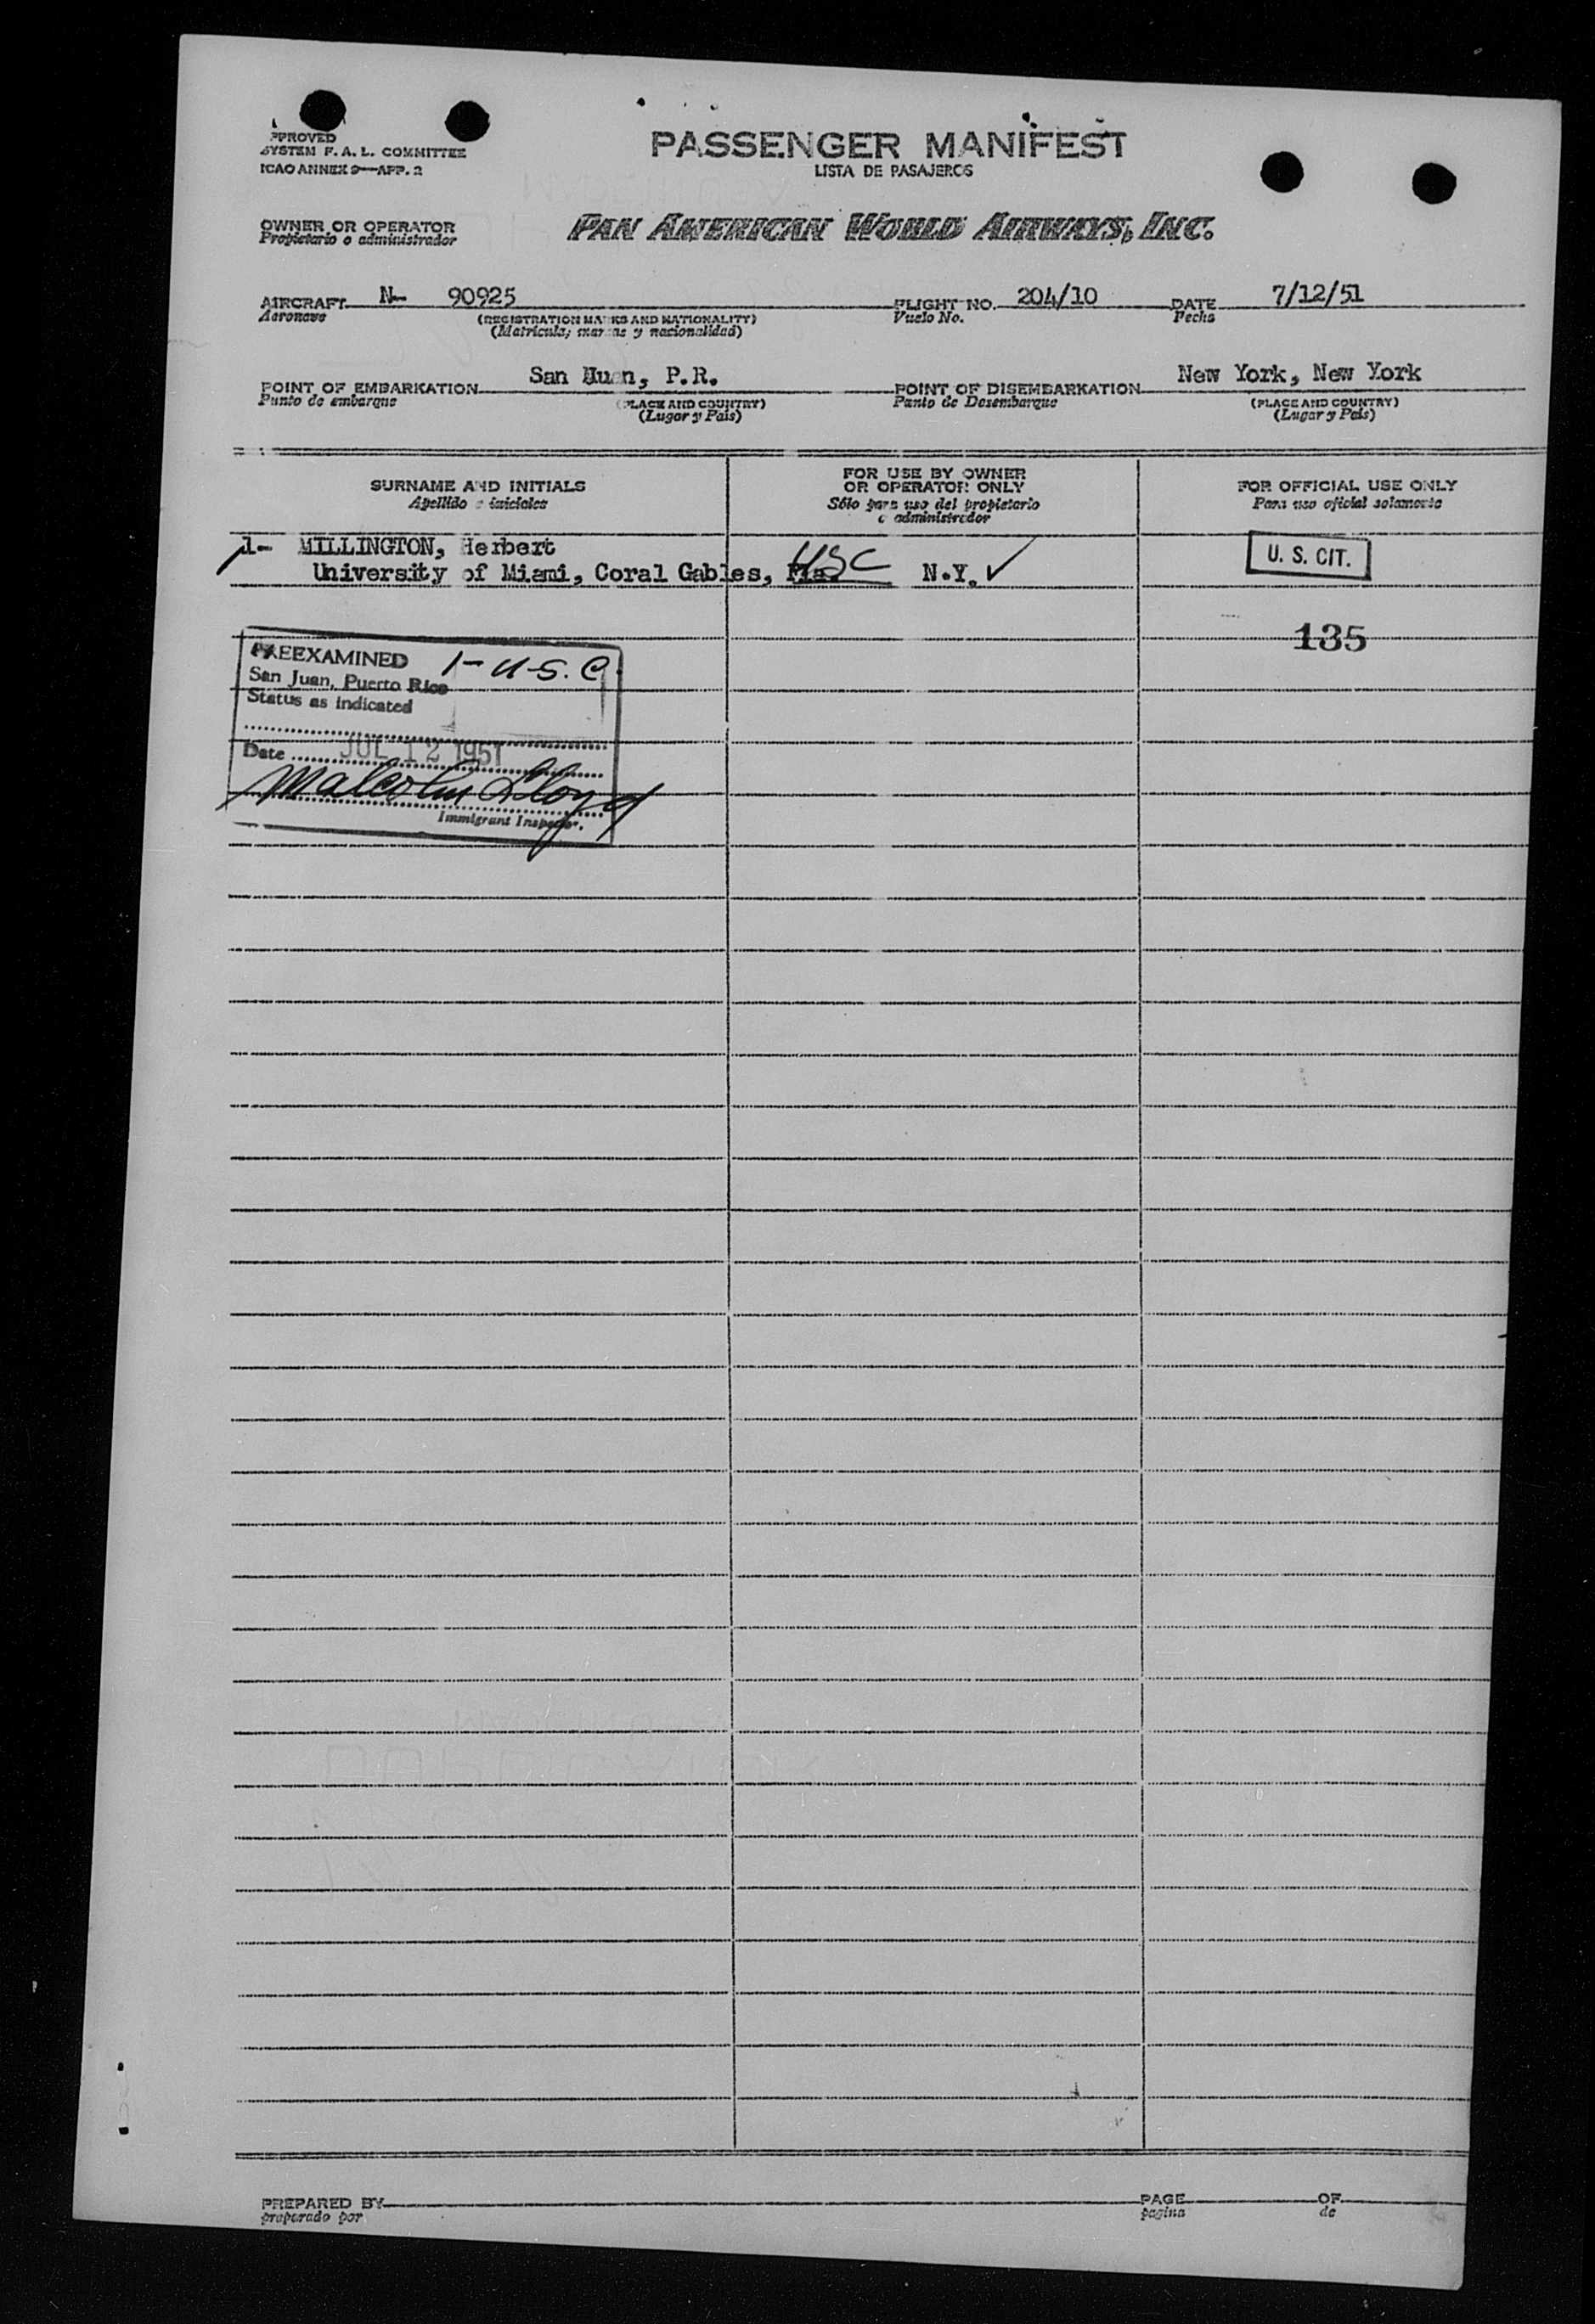 PPROVED
SYSTEM F. A. L. COMMITTEE
ICAO ANNEX 9—APP. 2
PASSENGER MANIFEST
LISTA DE PASAJEROS
OWNER OR OPERATOR
Propietario o administrador
PAN AMERICAN WORLD AIRWAYS, INC.
AIRCRAFT N- 90925 FLIGHT NO. 204/10 DATE 7/12/51
Aeronave (REGISTRATION MARKS AND NATIONALITY) Vuelo No. Fecha
(Matricula, marcas y nacionalidad)
POINT OF EMBARKATION San Juan, P.R. POINT OF DISEMBARKATION New York, New York
Punto de embarque (PLACE AND COUNTRY) Punto de Desembarque (PLACE AND COUNTRY)
(Lugar y Pais) (Lugar y Pais)
SURNAME AND INITIALS
Apellido e iniciales
FOR USE BY OWNER
OR OPERATOR ONLY
Sólo para uso del propietario
o administrador
FOR OFFICIAL USE ONLY
Para uso oficial solamente
1- MILLINGTON, Herbert
University of Miami, Coral Gables, Fla. USC N.Y. ✓
U. S. CIT.
135
PREEXAMINED 1-U.S.C.
San Juan, Puerto Rico
Status as indicated
Date JUL 12 1951
Malcolm Lloyd
Immigrant Inspector.
PREPARED BY PAGE OF
preparado por pagina de